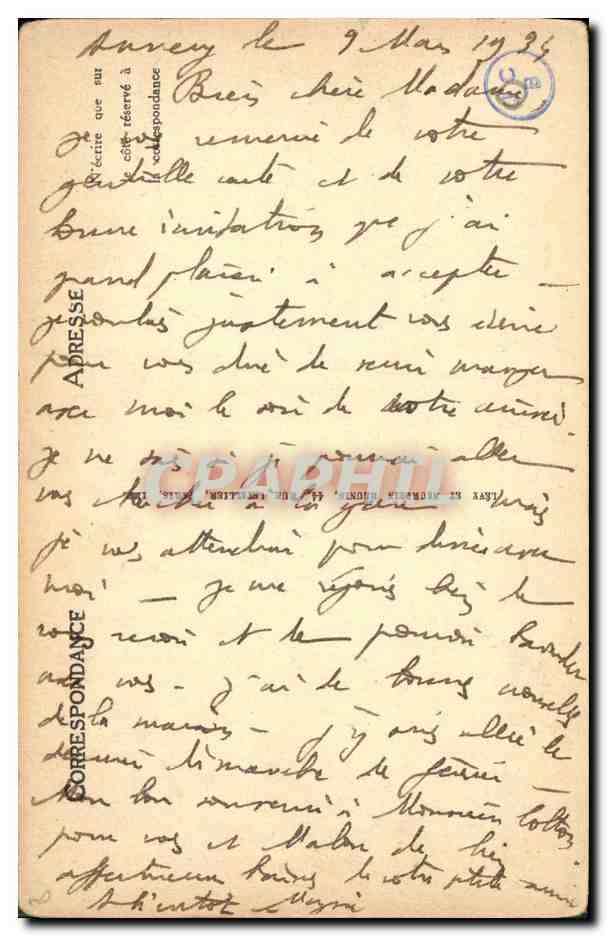 Annecy le 9 Mars 1934
Bien chère Madame,
je remercie de votre
gentille carte et de votre
bonne invitation que j'ai
grand plaisir à accepter —
je voulais justement vous écrire
pour vous dire de venir manger
avec moi le soir de votre arrivée.
je ne sais si je pourrai aller
vous chercher à la gare mais
je vous attendrai pour dîner avec
moi — je me réjouis bien de
vous revoir et de pouvoir bavarder
avec vous — j'ai de bonnes nouvelles
de la maison — j'y suis allée le
dernier dimanche de février —
Mon bon souvenir à Monsieur
pour vous et de bien
affectueux baisers de votre petite amie
A bientôt
N'écrire que sur
le côté réservé à
correspondance
ADRESSE
CORRESPONDANCE
LÉVY ET NEURDEIN RÉUNIS, 44, RUE LETELLIER, PARIS
CPAPHIL